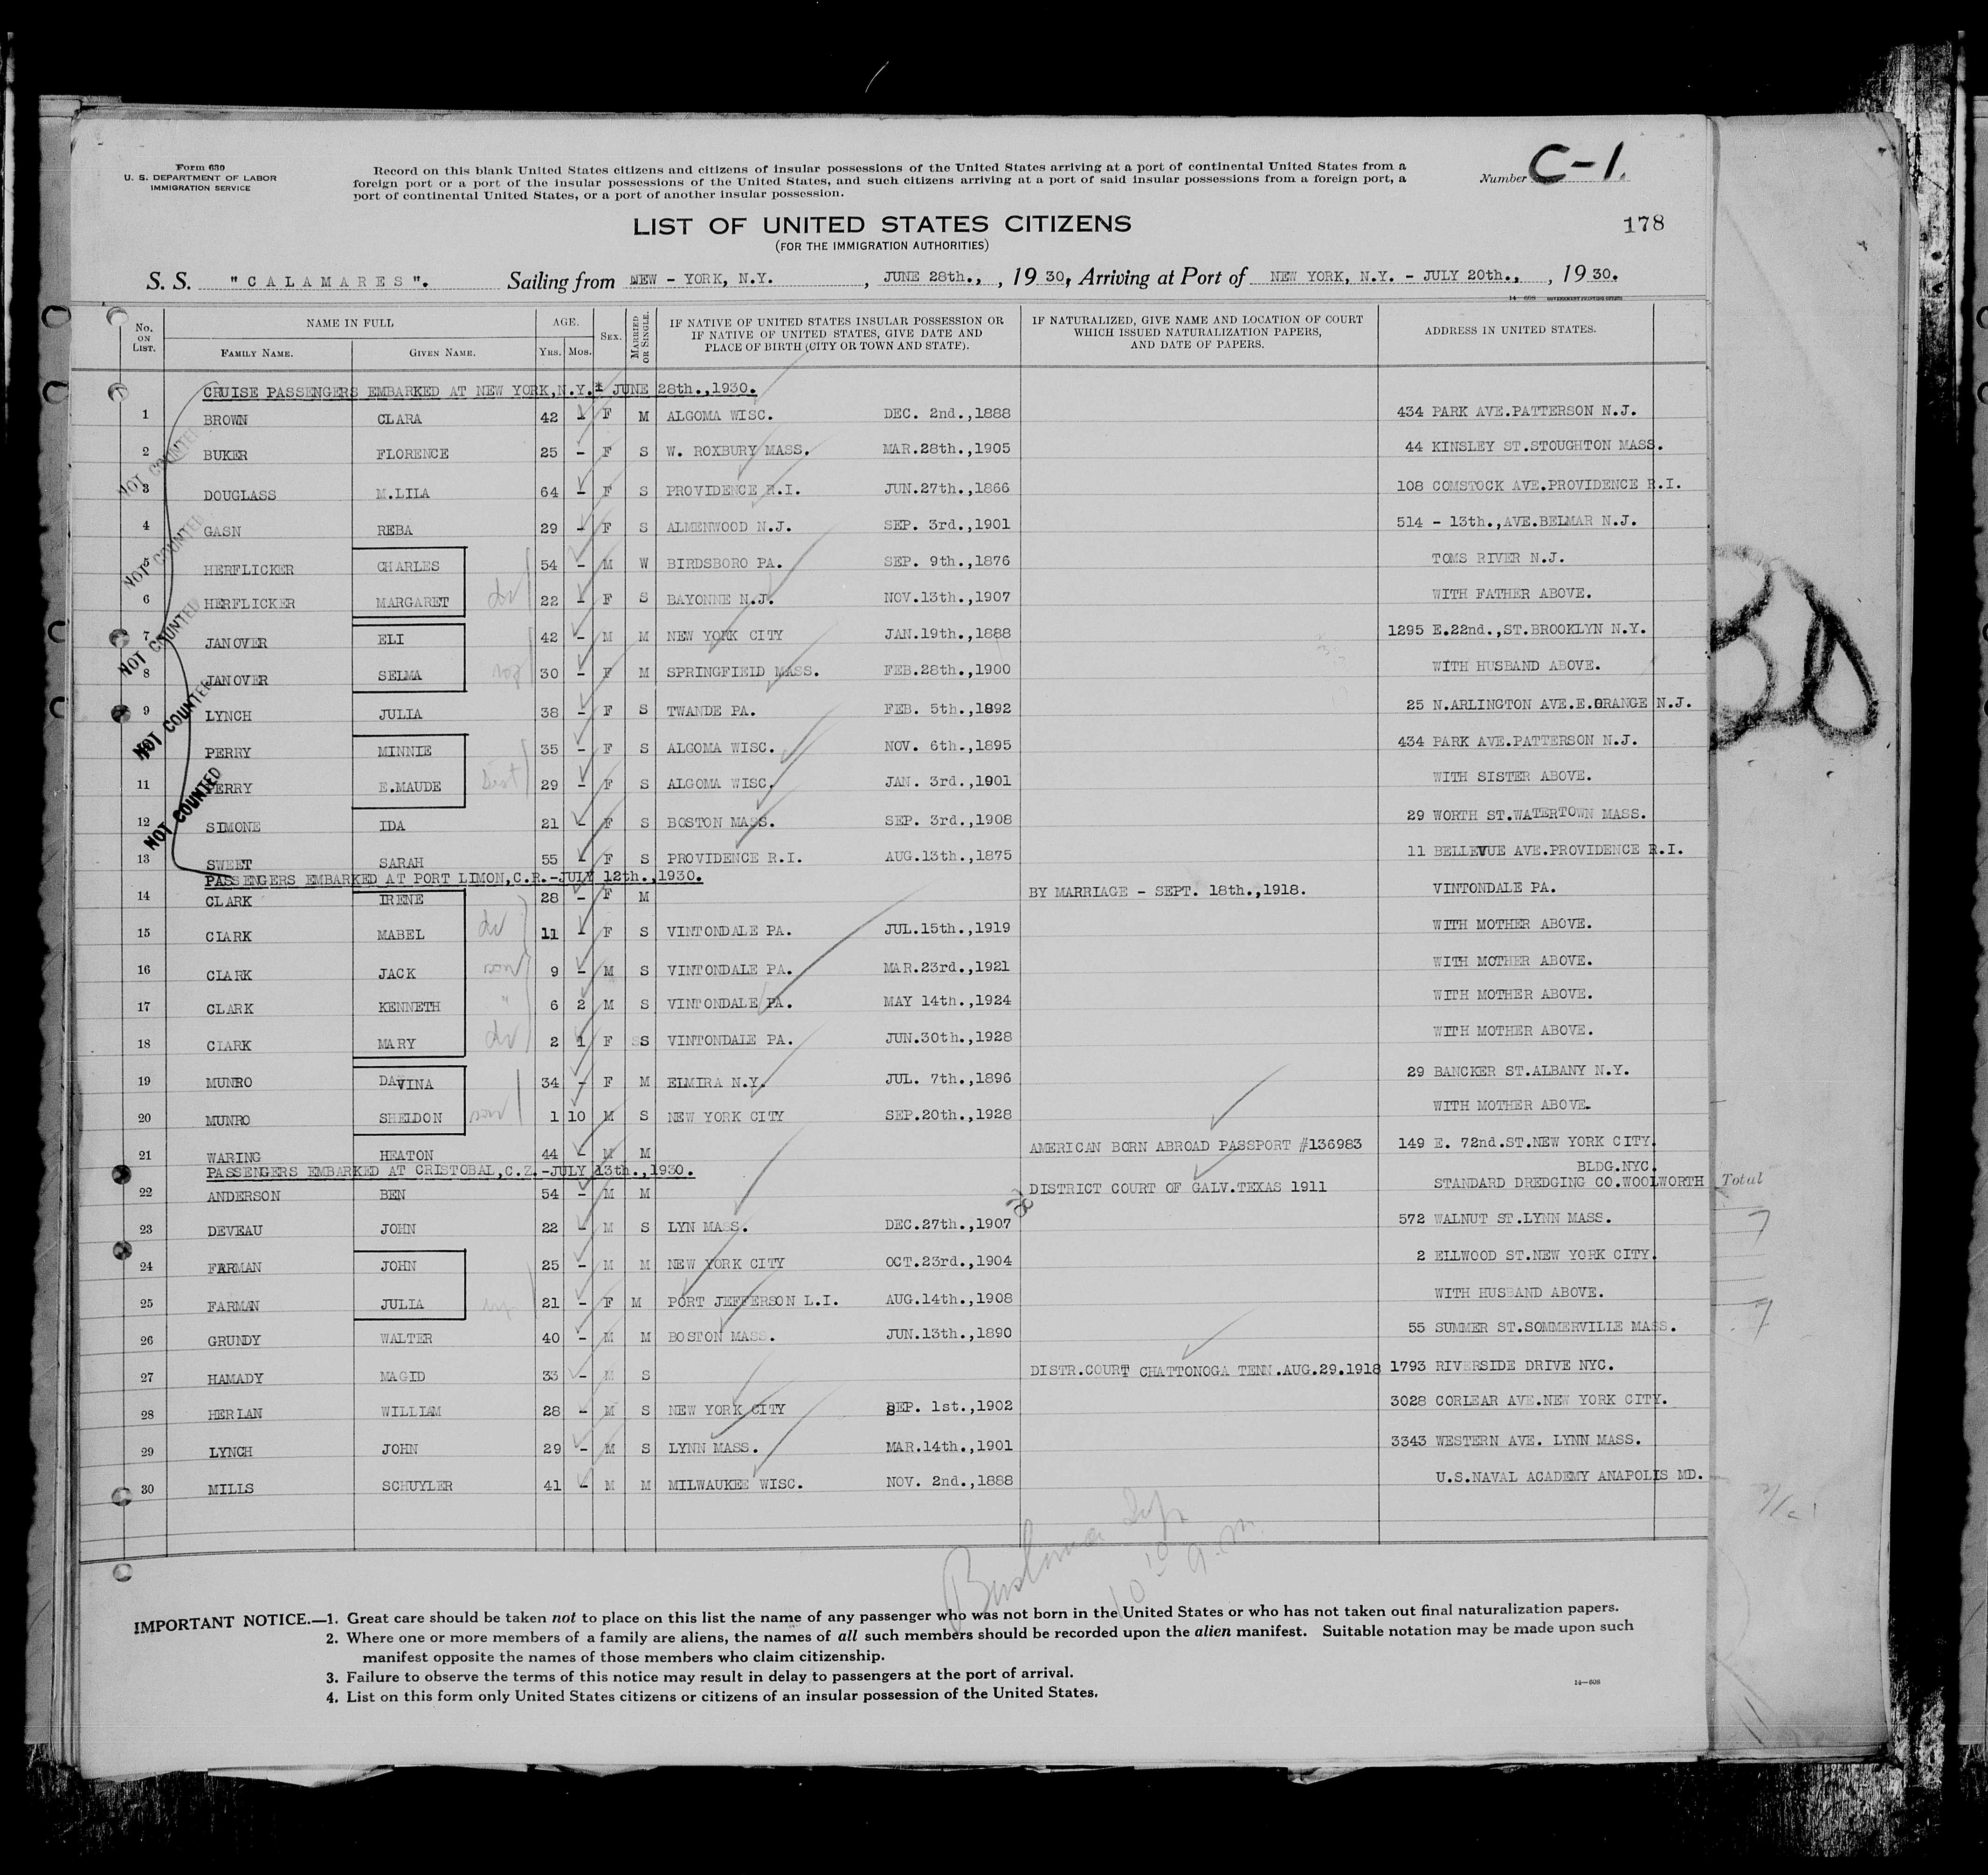 Form 630
U. S. DEPARTMENT OF LABOR
IMMIGRATION SERVICE
Record on this blank United States citizens and citizens of insular possessions of the United States arriving at a port of continental United States from a
foreign port or a port of the insular possessions of the United States, and such citizens arriving at a port of said insular possessions from a foreign port, a
port of continental United States, or a port of another insular possession.
Number C-1.
LIST OF UNITED STATES CITIZENS
(FOR THE IMMIGRATION AUTHORITIES)
178
S. S. "CALAMARES". Sailing from NEW - YORK, N.Y. , JUNE 28th., , 19 30, Arriving at Port of NEW YORK, N.Y. - JULY 20th., , 19 30.
14-608 GOVERNMENT PRINTING OFFICE
No. ON LIST. NAME IN FULL FAMILY NAME. GIVEN NAME. AGE. YRS. MOS. SEX. MARRIED OR SINGLE. IF NATIVE OF UNITED STATES INSULAR POSSESSION OR IF NATIVE OF UNITED STATES, GIVE DATE AND PLACE OF BIRTH (CITY OR TOWN AND STATE). IF NATURALIZED, GIVE NAME AND LOCATION OF COURT WHICH ISSUED NATURALIZATION PAPERS, AND DATE OF PAPERS. ADDRESS IN UNITED STATES.
CRUISE PASSENGERS EMBARKED AT NEW YORK,N.Y.* JUNE 28th.,1930.
1 BROWN CLARA 42 - F M ALGOMA WISC. DEC. 2nd.,1888 434 PARK AVE.PATTERSON N.J.
2 BUKER FLORENCE 25 - F S W. ROXBURY MASS. MAR.28th.,1905 44 KINSLEY ST.STOUGHTON MASS.
NOT COUNTED
3 DOUGLASS M.LILA 64 - F S PROVIDENCE R.I. JUN.27th.,1866 108 COMSTOCK AVE.PROVIDENCE R.I.
4 GASN REBA 29 - F S ALMENWOOD N.J. SEP. 3rd.,1901 514 - 13th.,AVE.BELMAR N.J.
NOT COUNTED
5 HERFLICKER CHARLES 54 - M W BIRDSBORO PA. SEP. 9th.,1876 TOMS RIVER N.J.
6 HERFLICKER MARGARET 22 - F S BAYONNE N.J. NOV.13th.,1907 WITH FATHER ABOVE.
NOT COUNTED
7 JANOVER ELI 42 - M M NEW YORK CITY JAN.19th.,1888 1295 E.22nd.,ST.BROOKLYN N.Y.
8 JANOVER SELMA 30 - F M SPRINGFIELD MASS. FEB.28th.,1900 WITH HUSBAND ABOVE.
9 LYNCH JULIA 38 - F S TWANDE PA. FEB. 5th.,1892 25 N.ARLINGTON AVE.E.ORANGE N.J.
NOT COUNTED
PERRY MINNIE 35 - F S ALGOMA WISC. NOV. 6th.,1895 434 PARK AVE.PATTERSON N.J.
11 PERRY E.MAUDE 29 - F S ALGOMA WISC. JAN. 3rd.,1901 WITH SISTER ABOVE.
NOT COUNTED
12 SIMONE IDA 21 - F S BOSTON MASS. SEP. 3rd.,1908 29 WORTH ST.WATERTOWN MASS.
13 SWEET SARAH 55 - F S PROVIDENCE R.I. AUG.13th.,1875 11 BELLEVUE AVE.PROVIDENCE R.I.
PASSENGERS EMBARKED AT PORT LIMON,C.R.-JULY 12th.,1930.
14 CLARK IRENE 28 - F M BY MARRIAGE - SEPT. 18th.,1918. VINTONDALE PA.
15 CLARK MABEL 11 - F S VINTONDALE PA. JUL.15th.,1919 WITH MOTHER ABOVE.
16 CLARK JACK son 9 - M S VINTONDALE PA. MAR.23rd.,1921 WITH MOTHER ABOVE.
17 CLARK KENNETH " 6 2 M S VINTONDALE PA. MAY 14th.,1924 WITH MOTHER ABOVE.
18 CLARK MARY 2 1 F S VINTONDALE PA. JUN.30th.,1928 WITH MOTHER ABOVE.
19 MUNRO DAVINA 34 - F M ELMIRA N.Y. JUL. 7th.,1896 29 BANCKER ST.ALBANY N.Y.
20 MUNRO SHELDON son 1 10 M S NEW YORK CITY SEP.20th.,1928 WITH MOTHER ABOVE.
21 WARING HEATON 44 - M M AMERICAN BORN ABROAD PASSPORT #136983 149 E. 72nd.ST.NEW YORK CITY.
PASSENGERS EMBARKED AT CRISTOBAL,C.Z.-JULY 13th.,1930.
BLDG.NYC.
22 ANDERSON BEN 54 - M M DISTRICT COURT OF GALV.TEXAS 1911 STANDARD DREDGING CO.WOOLWORTH Total
23 DEVEAU JOHN 22 - M S LYN MASS. DEC.27th.,1907 572 WALNUT ST.LYNN MASS.
24 FARMAN JOHN 25 - M M NEW YORK CITY OCT.23rd.,1904 2 ELLWOOD ST.NEW YORK CITY.
25 FARMAN JULIA 21 - F M PORT JEFFERSON L.I. AUG.14th.,1908 WITH HUSBAND ABOVE.
26 GRUNDY WALTER 40 - M M BOSTON MASS. JUN.13th.,1890 55 SUMMER ST.SOMMERVILLE MASS.
27 HAMADY MAGID 33 - M S DISTR.COURT CHATTONOGA TENN.AUG.29.1918 1793 RIVERSIDE DRIVE NYC.
28 HERLAN WILLIAM 28 - M S NEW YORK CITY SEP. 1st.,1902 3028 CORLEAR AVE.NEW YORK CITY.
29 LYNCH JOHN 29 - M S LYNN MASS. MAR.14th.,1901 3343 WESTERN AVE. LYNN MASS.
30 MILLS SCHUYLER 41 - M M MILWAUKEE WISC. NOV. 2nd.,1888 U.S.NAVAL ACADEMY ANAPOLIS MD.
IMPORTANT NOTICE.—1. Great care should be taken not to place on this list the name of any passenger who was not born in the United States or who has not taken out final naturalization papers.
2. Where one or more members of a family are aliens, the names of all such members should be recorded upon the alien manifest. Suitable notation may be made upon such
manifest opposite the names of those members who claim citizenship.
3. Failure to observe the terms of this notice may result in delay to passengers at the port of arrival.
4. List on this form only United States citizens or citizens of an insular possession of the United States.
14—608